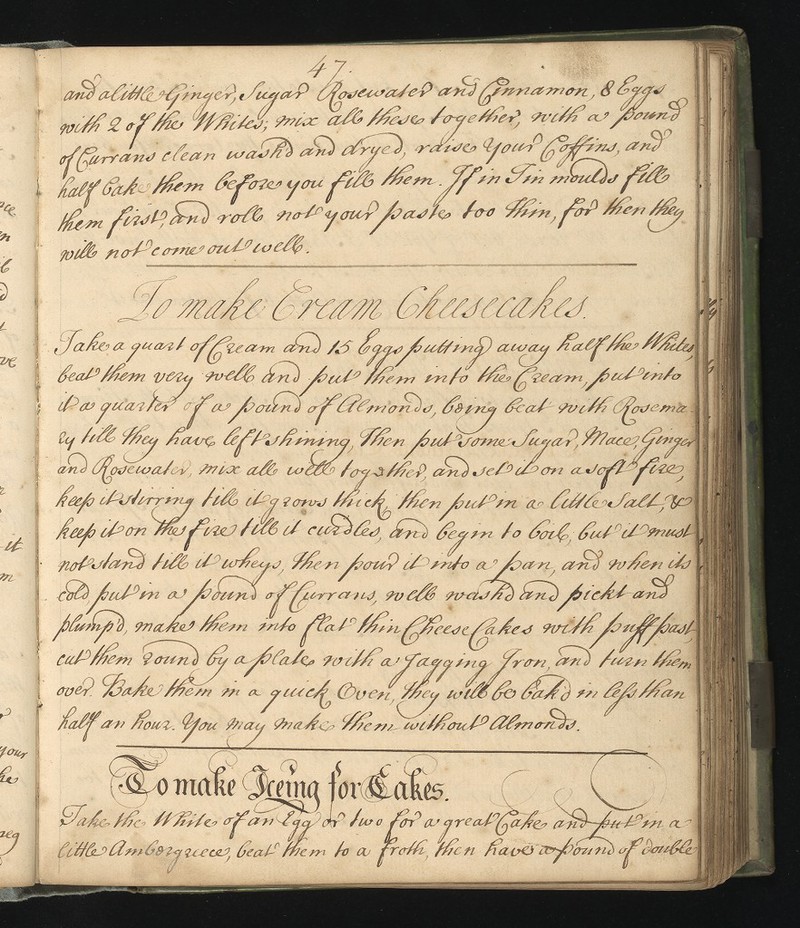 47.
and a little Ginger, Sugar Rosewater and Cinnamon, 8 Eggs
with 2 of the Whites; mix all these together, with a pound
of Currans clean wash'd and dryed, raise your Coffins, and
half bake them before you fill them. If in Tin moulds fill
them first, and roll not your paste too thin, for then they
will not come out well.
To make Cream Cheesecakes.
Take a quart of Cream and 15 Eggs putting away half the Whites,
beat them very well and put them into the Cream, put into
it a quarter of a pound of Almonds, being beat with Rosema
ry till they have left shining, then put some Sugar, Mace, Ginger
and Rosewater, mix all well together, and set it on a soft fire,
keep it stirring till it grows thick, then put in a little Salt, &
keep it on the fire till it curdles, and begin to boil, but it must
not stand till it wheys, then pour it into a pan, and when its
cold put in a pound of Currans, well wash'd and pickt and
plump'd, make them into flat thin Cheese Cakes with puff past,
cut them round by a plate with a Jagging Iron, and turn them
over. Bake them in a quick Oven, they will be bak'd in less than
half an hour. You may make them without Almonds.
To make Iceing for Cakes.
Take the White of an Egg or two for a great Cake and put in a
little Ambergriece, beat them to a froth, then have a pound of double